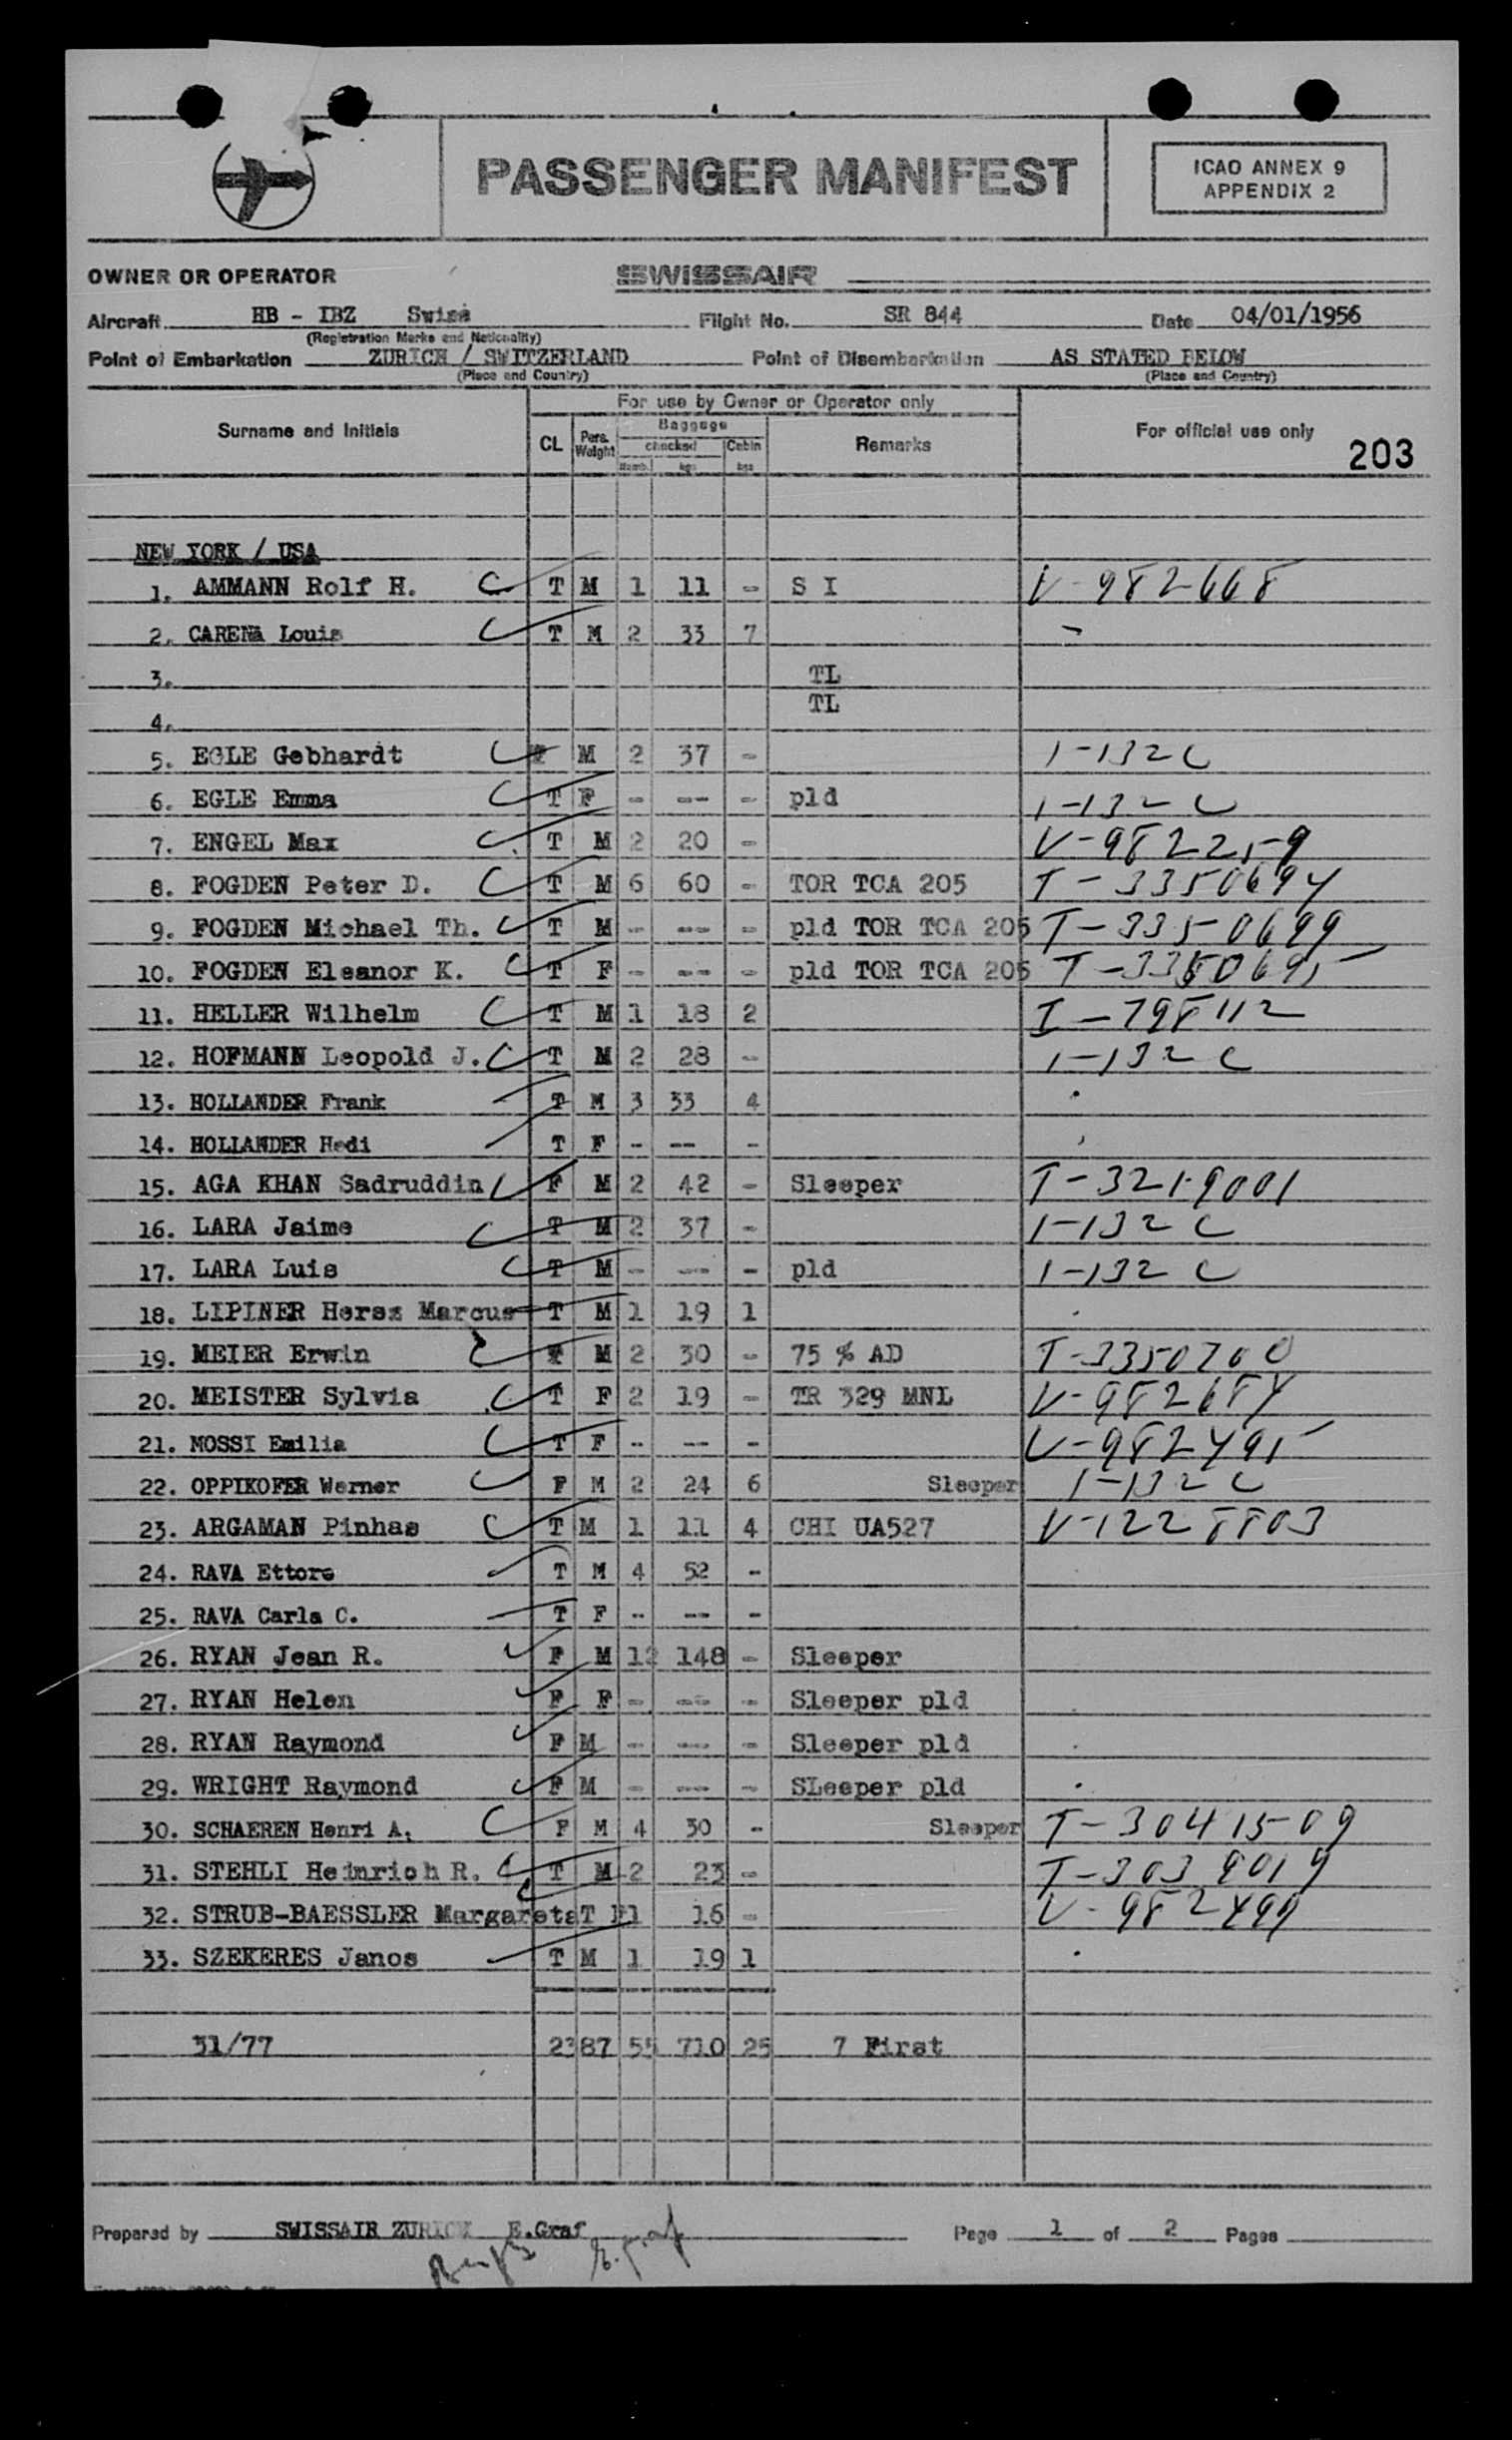 PASSENGER MANIFEST
ICAO ANNEX 9
APPENDIX 2
OWNER OR OPERATOR SWISSAIR
Aircraft HB - IBZ Swiss Flight No. SR 844 Date 04/01/1956
(Registration Marks and Nationality)
Point of Embarkation ZURICH / SWITZERLAND Point of Disembarkation AS STATED BELOW
(Place and Country) (Place and Country)
For use by Owner or Operator only
Surname and Initials CL Pers. Weight Baggage checked Numb. kgs Cabin kgs Remarks For official use only
203
NEW YORK / USA
1. AMMANN Rolf H. C T M 1 11 - S I V-982668
2. CARENA Louis C T M 2 33 7 -
3. TL
4. TL
5. EGLE Gebhardt C T M 2 37 - 1-132C
6. EGLE Emma C T F - --- - pld 1-132C
7. ENGEL Max C T M 2 20 - V-982259
8. FOGDEN Peter D. C T M 6 60 - TOR TCA 205 T-3350694
9. FOGDEN Michael Th. C T M - --- - pld TOR TCA 205 T-3350699
10. FOGDEN Eleanor K. C T F - --- - pld TOR TCA 205 T-3350695
11. HELLER Wilhelm C T M 1 18 2 I-798112
12. HOFMANN Leopold J. C T M 2 28 - 1-132C
13. HOLLANDER Frank T M 3 33 4
14. HOLLANDER Hedi T F - -- -
15. AGA KHAN Sadruddin C F M 2 42 - Sleeper T-3219001
16. LARA Jaime C T M 2 37 - 1-132C
17. LARA Luis C T M - --- - pld 1-132C
18. LIPINER Hersz Marcus T M 1 19 1
19. MEIER Erwin C T M 2 30 - 75 % AD T-3350700
20. MEISTER Sylvia C T F 2 19 - TR 329 MNL V-982684
21. MOSSI Emilia C T F -- -- - V-982495
22. OPPIKOFER Werner C F M 2 24 6 Sleeper 1-132C
23. ARGAMAN Pinhas C T M 1 11 4 CHI UA527 V-1228803
24. RAVA Ettore T M 4 52 -
25. RAVA Carla C. T F -- -- -
26. RYAN Jean R. F M 12 148 - Sleeper
27. RYAN Helen F F - --- - Sleeper pld
28. RYAN Raymond F M - --- - Sleeper pld
29. WRIGHT Raymond F M - --- - SLeeper pld
30. SCHAEREN Henri A. C F M 4 30 - Sleeper T-3041509
31. STEHLI Heinrich R. C T M 2 23 - T-3039019
32. STRUB-BAESSLER Margareta T F 1 16 - V-982499
33. SZEKERES Janos T M 1 19 1
31/77 2387 55 710 25 7 First
Prepared by SWISSAIR ZURICH E.Graf Page 1 of 2 Pages
E. Graf